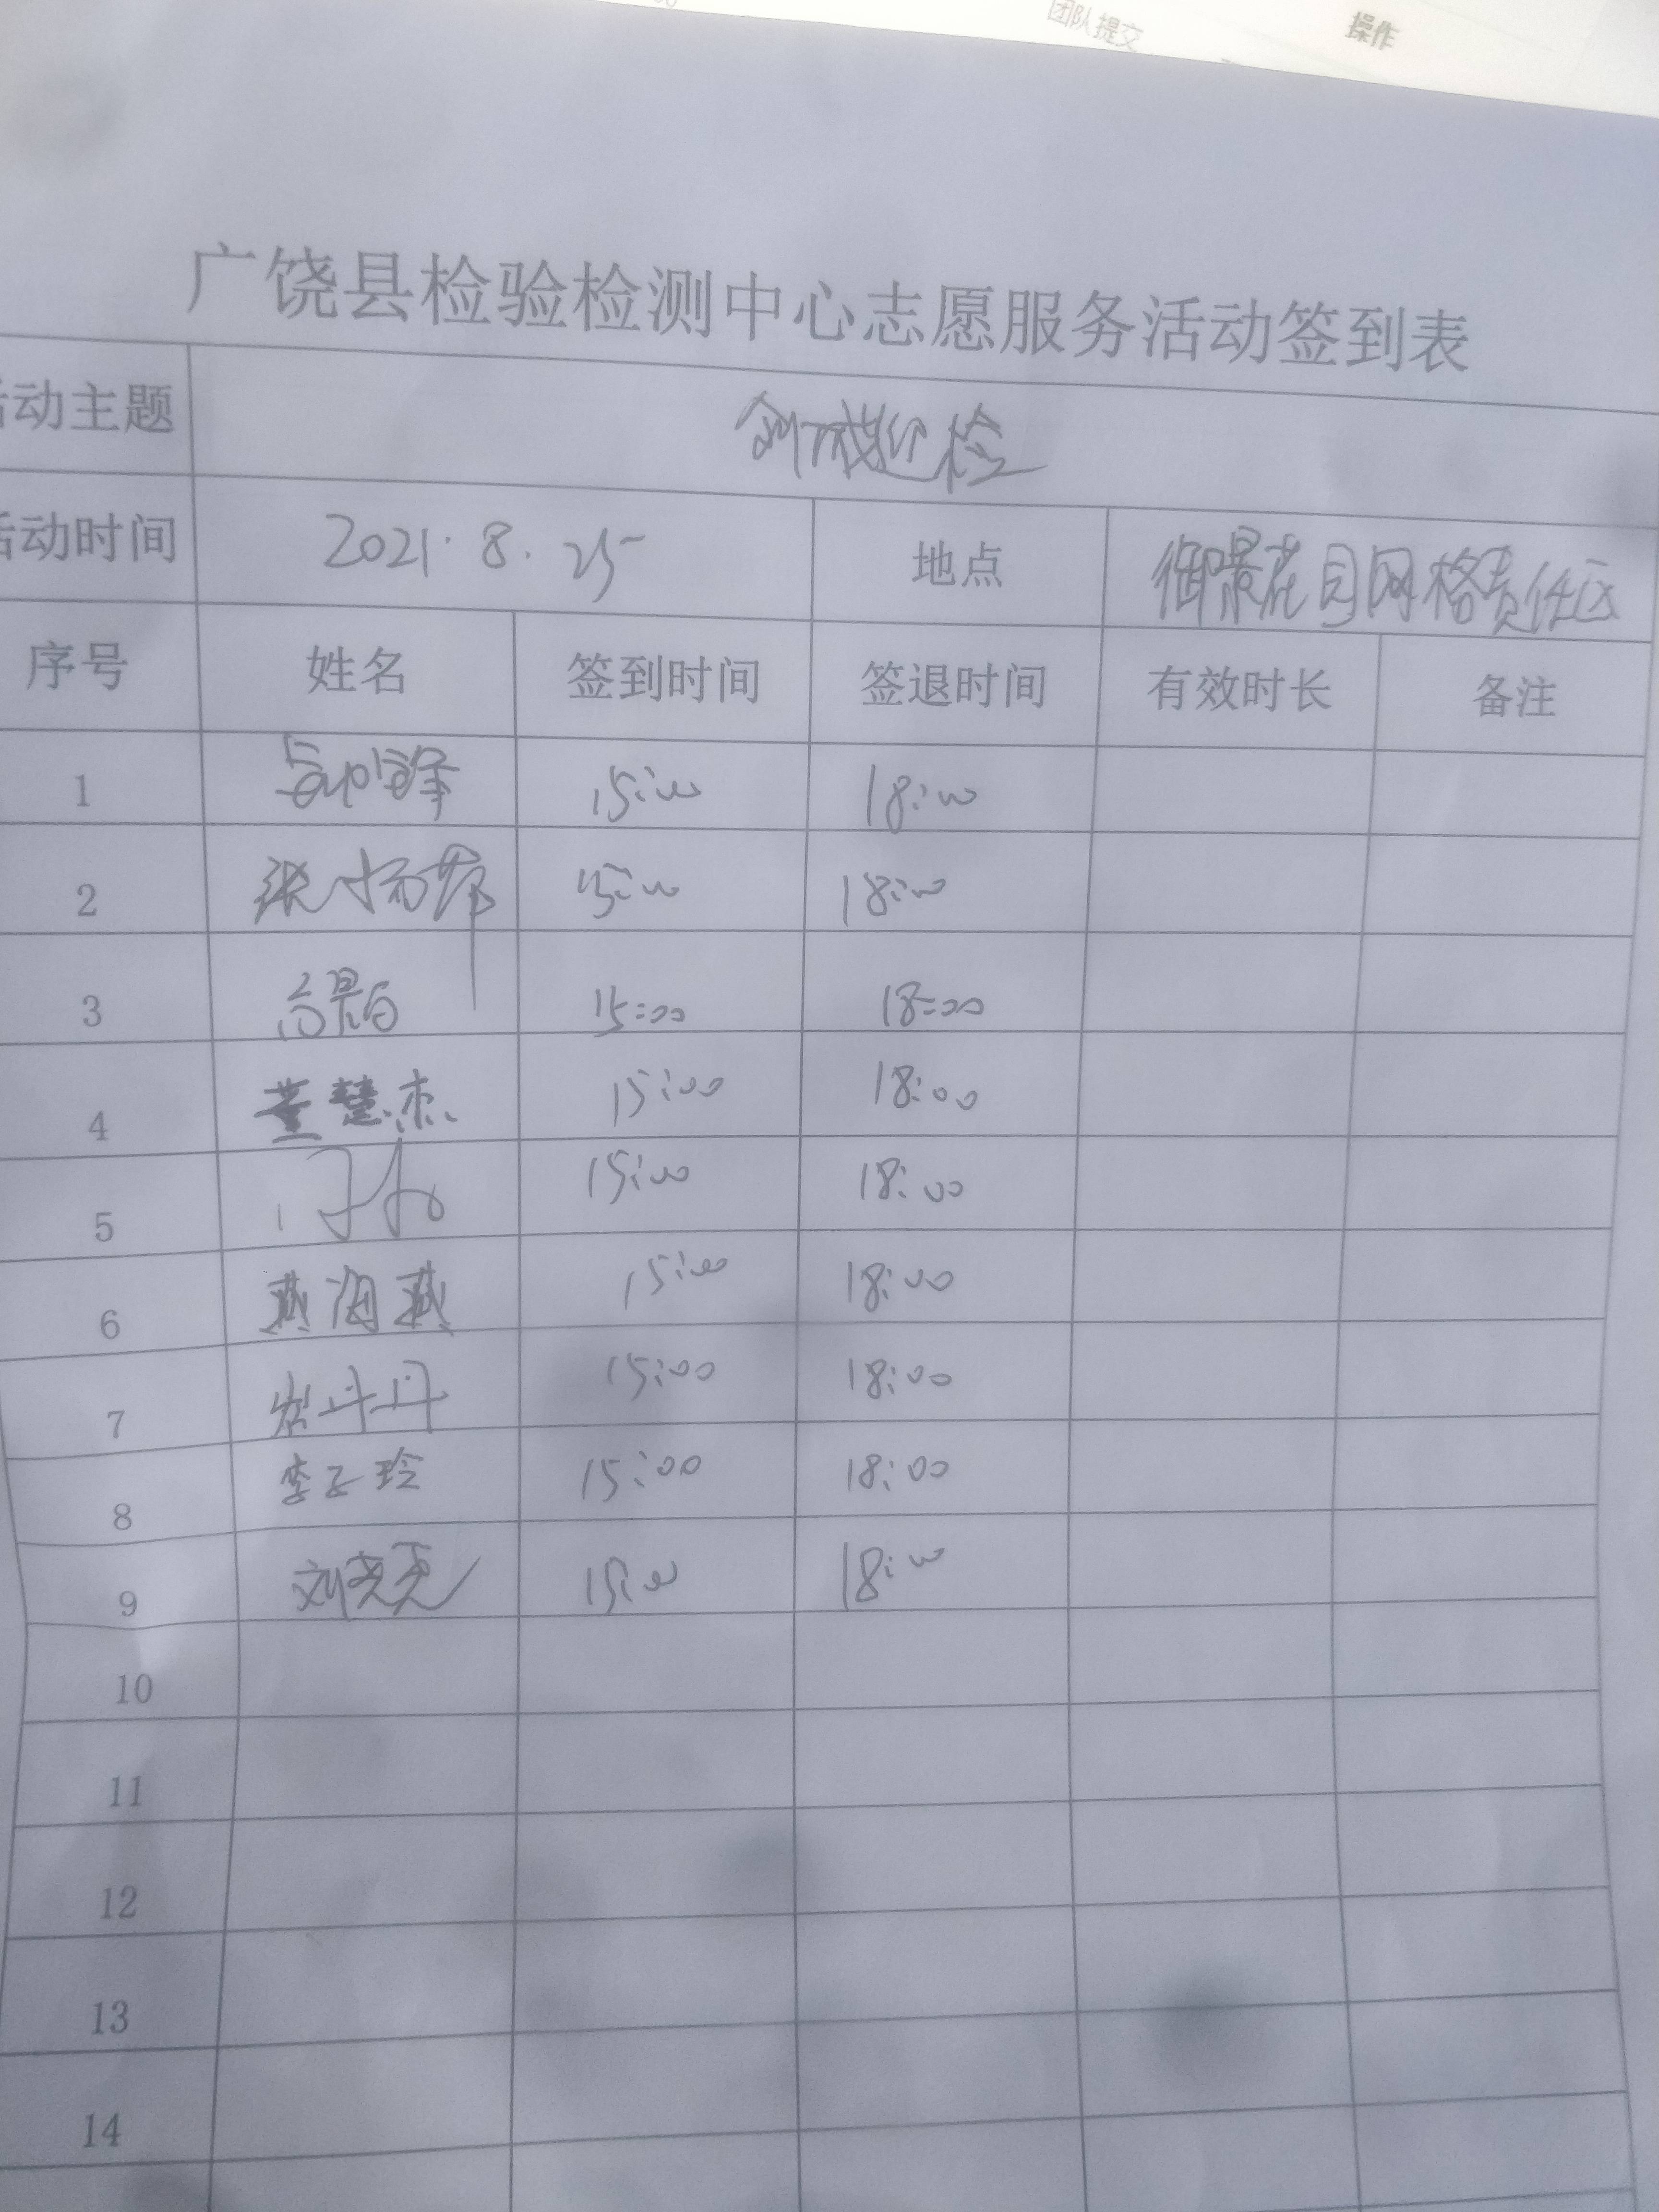 团队提交 操作
广饶县检验检测中心志愿服务活动签到表
活动主题 创城迎检
活动时间 2021.8.25 地点 御景花园网格责任区
序号 姓名 签到时间 签退时间 有效时长 备注
1 15:00 18:00
2 15:00 18:00
3 15:00 18:00
4 董慧杰 15:00 18:00
5 15:00 18:00
6 燕海燕 15:00 18:00
7 丹丹 15:00 18:00
8 李子玲 15:00 18:00
9 刘尧尧 15:00 18:00
10
11
12
13
14